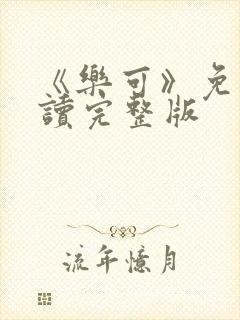 《樂可》免
讀完整版
流年憶月